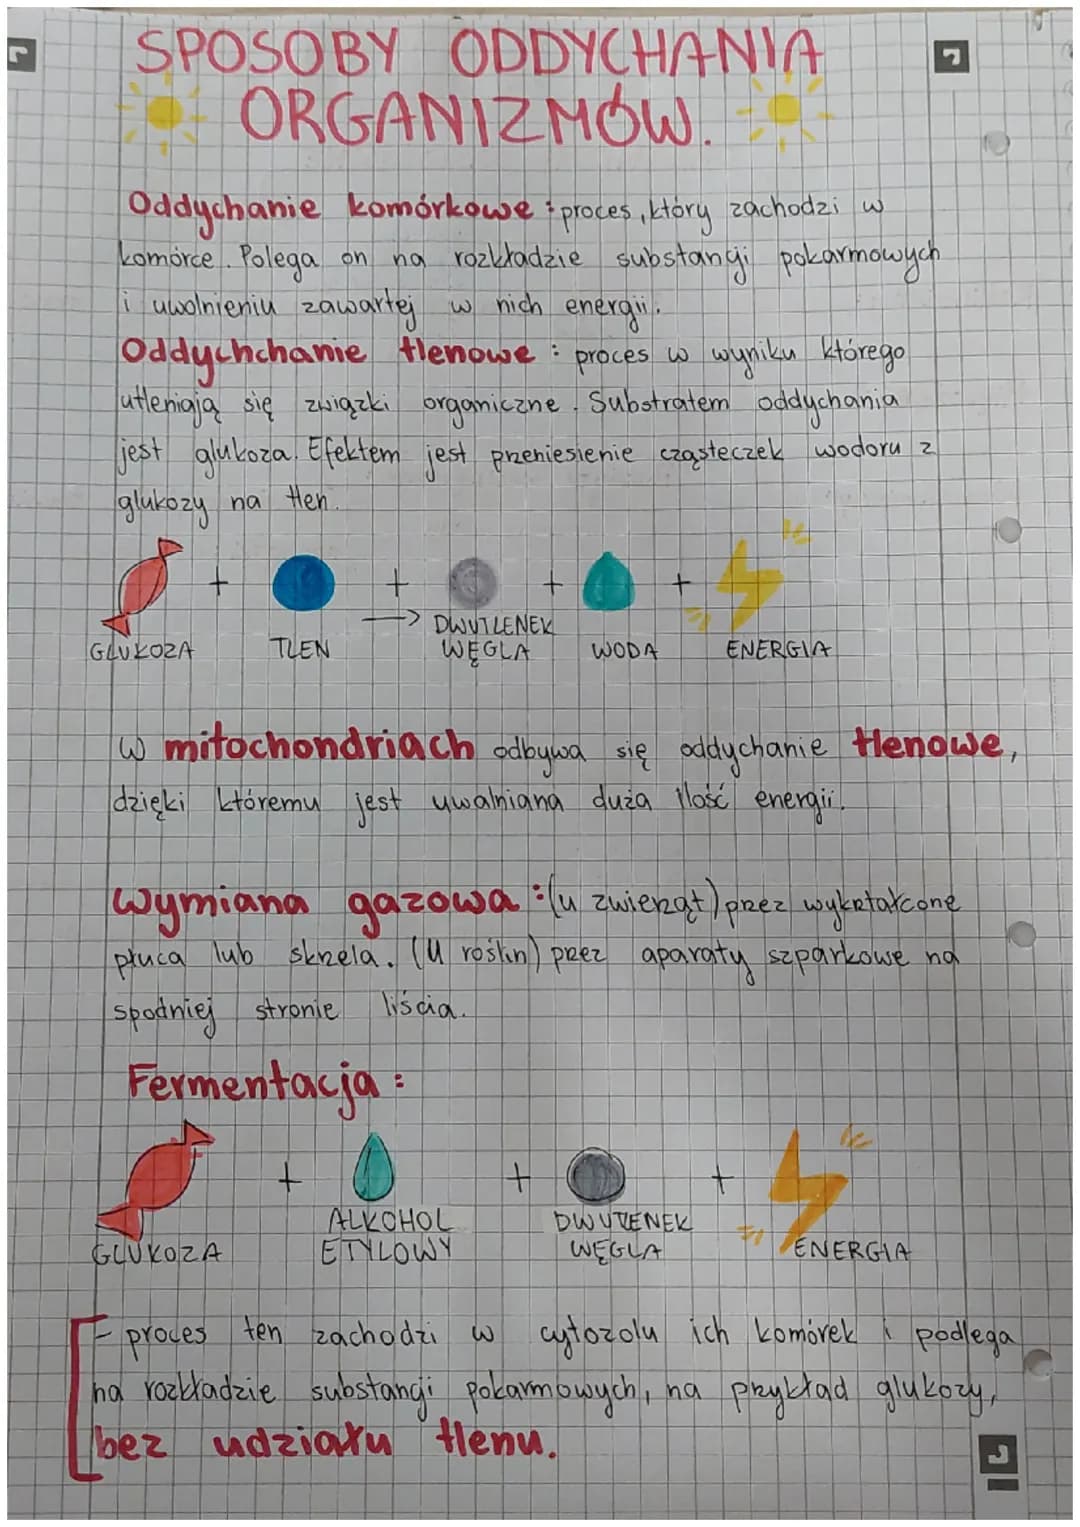 SPOSOBY ODDYCHANIA
ORGANIZMÓW.
Oddychanie komórkowe : proces, który zachodzi w
komórce. Polega on na rozkładzie substancji pokarmowych
i uwolnieniu zawartej w nich energii.
Oddychchanie tlenowe : proces w wyniku którego
utleniają się związki organiczne. Substratem oddychania
jest glukoza. Efektem jest przeniesienie cząsteczek wodoru z
glukozy na tlen.
+ + + +
→
GLUKOZA TLEN DWUTLENEK WĘGLA WODA ENERGIA
w mitochondriach odbywa się oddychanie tlenowe,
dzięki któremu jest uwalniana duża ilość energii.
Wymiana gazowa : (u zwierząt) przez wykształcone
płuca lub skrzela. (U roślin) przez aparaty szparkowe na
spodniej stronie liścia.
Fermentacja :
+ + +
GLUKOZA ALKOHOL ETYLOWY DWUTLENEK WĘGLA ENERGIA
- proces ten zachodzi w cytozolu ich komórek i podlega
na rozkładzie substancji pokarmowych, na przykład glukozy,
bez udziału tlenu.